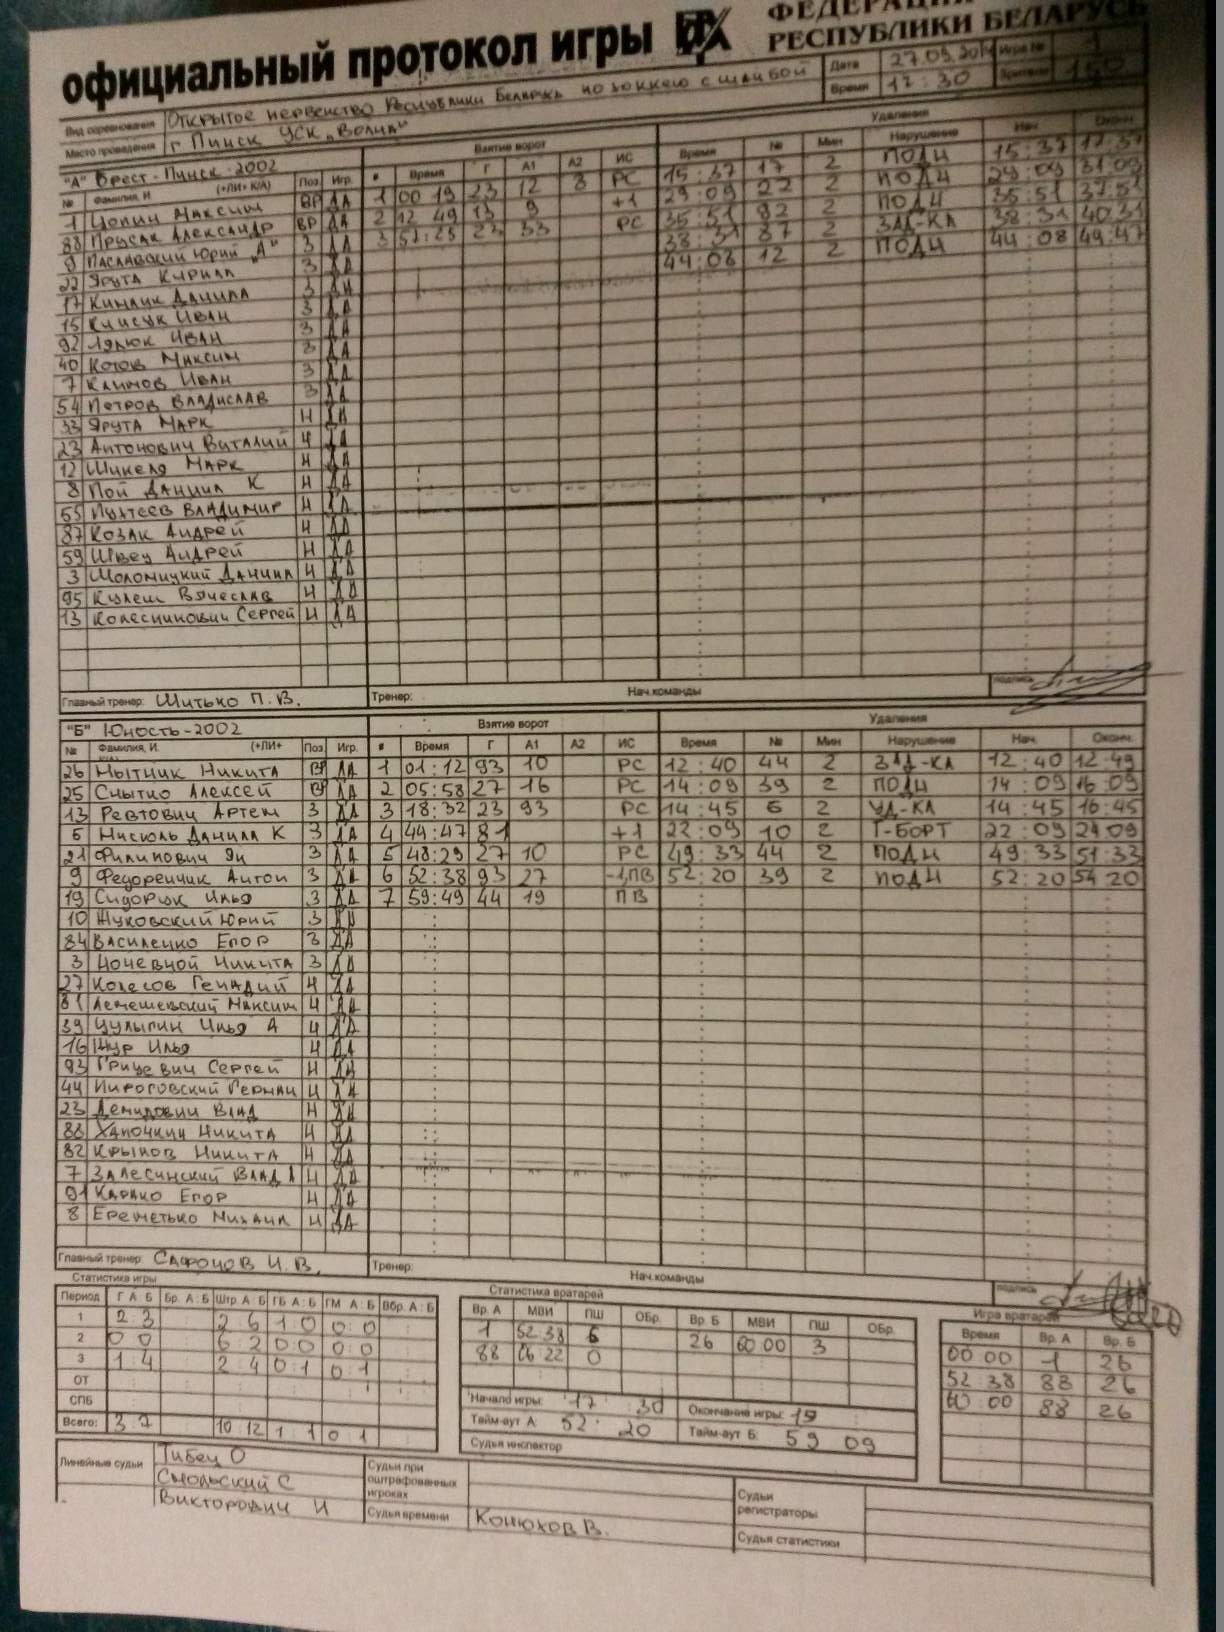 ФЕДЕРАЦИЯ
официальный протокол игры
РЕСПУБЛИКИ БЕЛАРУСЬ
Вид соревнования Открытое первенство Республики Беларусь по хоккею с шайбой Дата 27.09.2014 Игра № 1
Место проведения г Пинск УСК "Волна" Время 17:30 Зрители 150
"А" Брест-Пинск-2002 Взятие ворот Удаления
№ Фамилия, И (+ЛИ+ К/А) Поз Игр. # Время Г А1 А2 ИС Время № Мин Нарушение Нач. Оконч.
1 Цопин Максим ВР ДА 1 00 19 23 12 8 РС 15:37 17 2 ПОДН 15:37 17:37
88 Прусак Александр ВР ДА 2 12 49 13 9 +1 29:09 22 2 ПОДН 29:09 31:09
9 Паславский Юрий "А" З ДА 3 51:25 23 33 РС 35:51 92 2 ПОДН 35:51 37:51
22 Ярута Кирилл З ДА 38:31 87 2 ЗАД-КА 38:31 40:31
17 Кимлик Данила З ДА 44:08 12 2 ПОДН 44:08 44:47
15 Иван З ДА
92 Иван З ДА
40 Котов Максим З ДА
7 Климов Иван З ДА
54 Петров Владислав З ДА
33 Ярута Марк Н ДА
23 Антонович Виталий Н ДА
12 Шикеля Марк Н ДА
8 Пой Даниил К Н ДА
55 Пухтеев Владимир Н ДА
87 Козак Андрей Н ДА
59 Швец Андрей Н ДА
3 Шоломицкий Даниил Н ДА
95 Кулеш Вячеслав Н ДА
13 Колесникович Сергей Н ДА
Главный тренер: Шитько П.В. Тренер: Нач.команды подпись
"Б" Юность-2002 Взятие ворот Удаления
№ Фамилия, И. (+ЛИ+ К/А) Поз Игр. # Время Г А1 А2 ИС Время № Мин Нарушение Нач. Оконч.
26 Мытник Никита ВР ДА 1 01:12 93 10 РС 12:40 44 2 ЗАД-КА 12:40 12:49
25 Снытко Алексей ВР ДА 2 05:58 27 16 14:09 39 2 ПОДН 14:09 16:09
13 Ревтович Артем З ДА 3 18:32 23 93 РС 14:45 6 2 УД-КА 14:45 16:45
6 Мисюль Данила К З ДА 4 44:47 81 +1 22:09 10 2 Т-БОРТ 22:09 24:09
21 Филипович Ян З ДА 5 48:29 27 10 РС 49:33 44 2 ПОДН 49:33 51:33
9 Федоренчик Антон З ДА 6 52:38 93 27 -1,ПВ 52:20 39 2 ПОДН 52:20 54:20
19 Сидорук Илья З ДА 7 59:49 44 19 ПВ
10 Жуковский Юрий З ДА
84 Василенко Егор З ДА
3 Ночевной Никита З ДА
27 Колесов Генадий Н ДА
81 Лемешевский Максим Н ДА
39 Чулыгин Илья А Н ДА
16 Жур Илья Н ДА
93 Грицевич Сергей Н ДА
44 Пироговский Герман Н ДА
23 Демидович Влад Н ДА
88 Хапочкин Никита Н ДА
82 Крылов Никита Н ДА
7 Залесинский Влад А Н ДА
91 Карако Егор Н ДА
8 Ережетько Михаил Н ДА
Главный тренер: Сафонов И.В. Тренер: Нач.команды подпись
Статистика игры Статистика вратарей Игра вратарей
Период Г А:Б Бр. А:Б Штр А:Б ГБ А:Б ГМ А:Б Вбр. А:Б Вр. А МВИ ПШ ОБр. Вр. Б МВИ ПШ ОБр. Время Вр. А Вр. Б
1 2 3 2 6 1 0 0:0 1 52 38 6 26 60:00 3 00 00 1 26
2 0 0 6 2 0 0 0:0 88 06 22 0 52 38 88 26
3 1 4 2 4 0 1 0:1 60:00 88 26
ОТ
СПБ Начало игры: 17:30 Окончание игры: 19:
Всего: 3:7 10:12 1 1 0:1 Тайм-аут А: 52:20 Тайм-аут Б: 59 09
Судья инспектор
Линейные судьи Тибец О Судьи при оштрафованных игроках Судьи регистраторы
Смольский С
Викторович И Судья времени Конюхов В. Судьи статистики